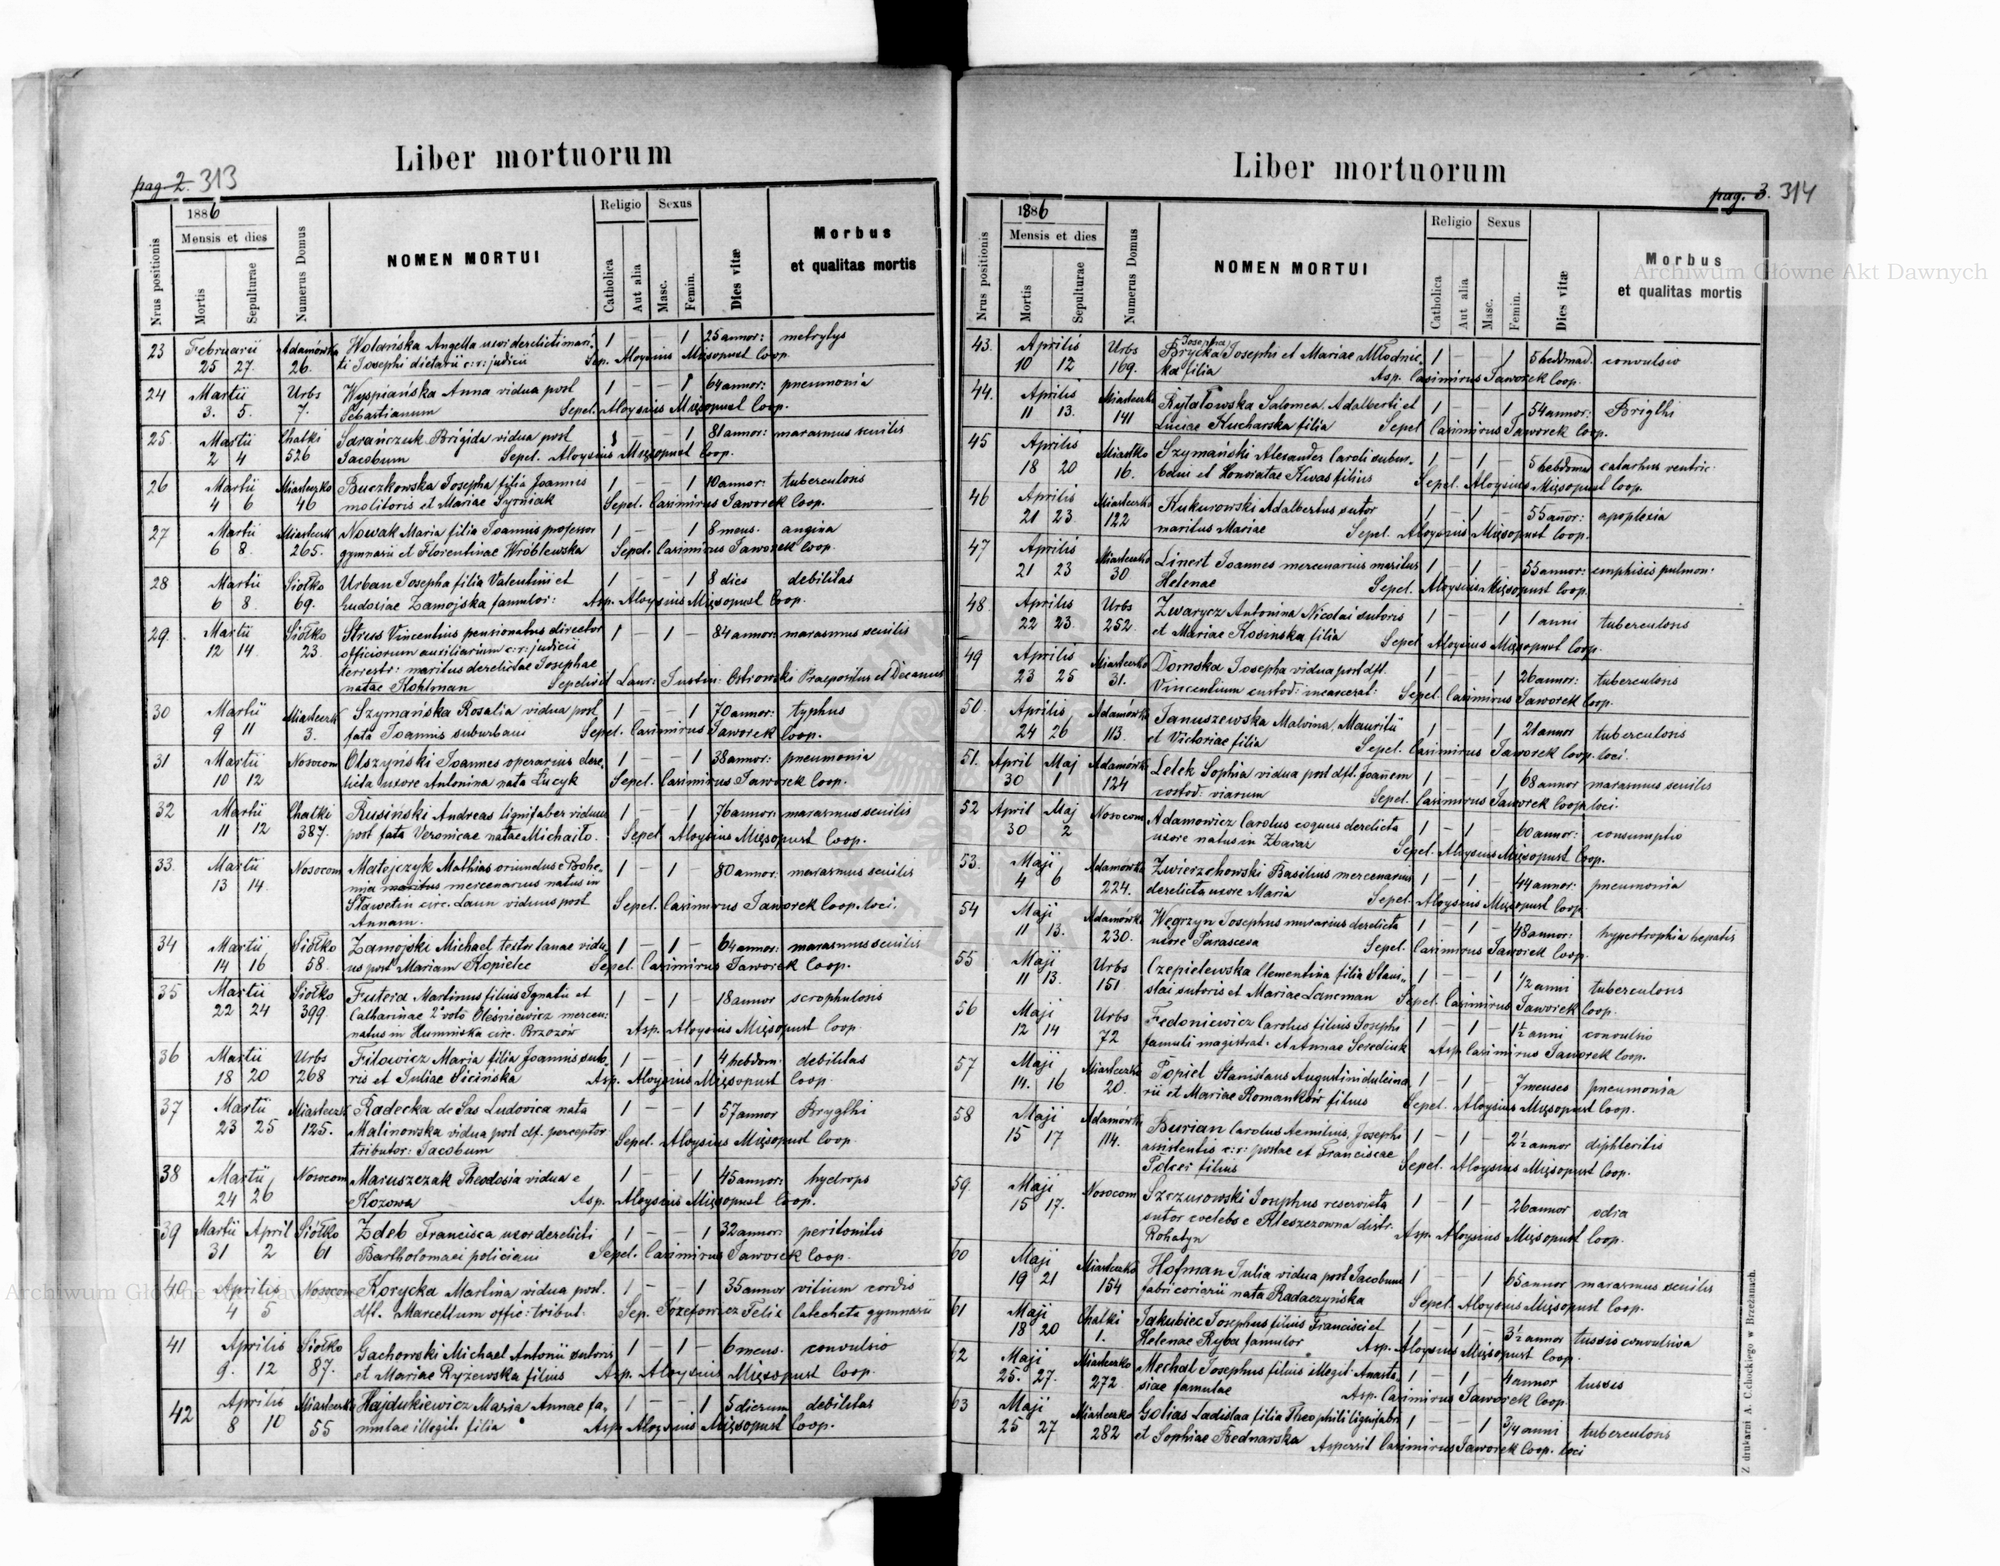 Liber mortuorum
pag. 2. 313
1886
Mensis et dies
Religio Sexus
Nrus positionis
Mortis
Sepulturae
Numerus Domus
NOMEN MORTUI
Catholica
Aut alia
Masc.
Femin.
Dies vitæ
Morbus
et qualitas mortis
23 Februarii Adamówka Wolańska Angella uxor derelicti mari- 1 — — 1 25 annor: metrytys
25 27. 26. ti Josephi dietarii c: r: judicii Sep. Aloysius Mięsopust Coop.
24 Martii Urbs Wyspiańska Anna vidua post 1 — — 1 64 annor: pneumonia
3. 5. 7. Sebastianum Sepel. Aloysius Mięsopust Coop.
25. Martii Chatki Sarańczuk Brigida vidua post 1 — — 1 81 annor: marasmus senilis
2 4 526 Jacobum Sepel. Aloysius Mięsopust Coop.
26 Martii Miasteczko Buczkowska Josepha filia Joannis 1 — — 1 10 annor: tuberculosis
4 6 46 molitoris et Mariae Syrniak Sepel. Casimirus Jaworek Coop.
27 Martii Miasteczk Nowak Maria filia Joannis professor 1 — — 1 8 mens. angina
6 8. 265. gymnasii et Florentinae Wróblewska Sepel. Casimirus Jaworek Coop.
28 Martii Siołko Urban Josepha filia Valentini et 1 — — 1 8 dies debilitas
6 8. 69. Ludosiae Zamojska famulor: Asp. Aloysius Mięsopust Coop.
29 Martii Siółko Stress Vincentius pensionatus director 1 — 1 — 84 annor: marasmus senilis
12 14. 23. officiorum auxiliarium c: r: judicii
terrestr: maritus derelictae Josephae
natae Kohlman Sepelivit Laur: Justin: Ostrowski Praepositus et Decanus
30 Martii Miasteczk Szymańska Rosalia vidua post 1 — — 1 70 annor: typhus
9 11 3. fata Joannis suburbani Sepel. Casimirus Jaworek Coop.
31 Martii Nosocom Olszyński Joannes operarius dere- 1 — 1 — 38 annor: pneumonia
10 12 licta uxore Antonina nata Łucyk Sepel. Casimirus Jaworek Coop.
32 Martii Chatki Rusiński Andreas lignifaber viduus 1 — 1 — 76 annor: marasmus senilis
11 12 387. post fata Veronicae natae Michaiło. Sepel. Aloysius Mięsopust Coop.
33. Martii Nosocom Matejczyk Mathias oriundus e Bohe- 1 — 1 — 80 annor: marasmus senilis
13 14. mia maritus mercenarius natus in
Stawetin circ. Laun viduus post Sepel. Casimirus Jaworek Coop. loci.
Annam.
34 Martii Siółko Zamojski Michael textor lanae vidu- 1 — 1 — 64 annor: marasmus senilis
14 16 58. us post Mariam Kopielec Sepel. Casimirus Jaworek Coop.
35 Martii Siółko Futera Martinus filius Ignatii et 1 — 1 — 18 annor scrophulosis
22 24 399 Catharinae 2º voto Olesniewicz mercen:
natus in Humniska circ. Brzozów Asp. Aloysius Mięsopust Coop
36 Martii Urbs Filowicz Maria filia Joannis suto- 1 — — 1 4 hebdom: debilitas
18 20 268 ris et Juliae Sicińska Asp. Aloysius Mięsopust Coop.
37 Martii Miasteczk Radecka de Sas Ludovica nata 1 — — 1 57 annor Bryghi
23 25 125. Malinowska vidua post df. perceptor
tributor: Jacobum Sepel. Aloysius Mięsopust Coop.
38 Martii Nosocom Maruszczak Theodosia vidua e 1 — — 1 45 annor: hydrops
24 26 Kozowa Asp. Aloysius Mięsopust Coop.
39 Martii April Siółko Zdeb Francisca uxor derelicti 1 — — 1 32 annor: peritonitis
31 2 61 Bartholomaei policiani Sepel. Casimirus Jaworek Coop.
40 Aprilis Nosocom Korycka Martina vidua post 1 — — 1 35 annor vitium cordis
4 5 dft. Marcellum offic: tribut: Sep. Józefowicz Felix catecheta gymnasii
41 Aprilis Siółko Gachowski Michael Antonii sutoris 1 — 1 — 6 mens. convulsio
9. 12 87. et Mariae Ryżewska filius Asp. Aloysius Mięsopust Coop.
42 Aprilis Miasteczk Hajdukiewicz Maria Annae fa- 1 — — 1 5 dierum debilitas
8 10 55 mulae illegit: filia Asp. Aloysius Mięsopust Coop.
Liber mortuorum
pag. 3. 314
1886
Mensis et dies
Religio Sexus
Nrus positionis
Mortis
Sepulturae
Numerus Domus
NOMEN MORTUI
Catholica
Aut alia
Masc.
Femin.
Dies vitæ
Morbus
et qualitas mortis
43. Aprilis Urbs Brycka Josephina Josephi et Mariae Młodnic- 1 — — 1 5 hebdmad. convulsio
10 12 169. ka filia Asp. Casimirus Jaworek Coop.
44. Aprilis Miasteczko Rytałowska Salomea Adalberti et 1 — — 1 54 annor: Brigthi
11 13. 141 Luciae Kucharska filia Sepel Casimirus Jaworek Coop.
45 Aprilis Miastko Szymański Alexander Caroli subur- 1 — 1 — 5 hebdomad catarhus ventric
18 20 16. bani et Honoratae Kwas filius Sepel. Aloysius Mięsopust Coop.
46 Aprilis Miasteczko Kukurowski Adalbertus sutor 1 — 1 — 55 añor: apoplexia
21 23 122 maritus Mariae Sepel. Aloysius Mięsopust Coop.
47 Aprilis Miasteczko Linert Joannes mercenarius maritus 1 — 1 — 55 annor: emphisis pulmon:
21 23 30 Helenae Sepel. Aloysius Mięsopust Coop.
48. Aprilis Urbs Zwarycz Antonina Nicolai sutoris 1 — — 1 1 anni tuberculosis
22 23 252. et Mariae Kosinska filia Sepel Aloysius Mięsopust Coop.
49 Aprilis Miasteczko Domska Josepha vidua post dft. 1 — — 1 26 annor: tuberculosis
23 25 31. Vincentium custod: incarcerat: Sepel. Casimirus Jaworek Coop.
50. Aprilis Adamówk Januszewska Malvina Mauritii 1 — — 1 21 annor tuberculosis
24 26 113. et Victoriae filia Sepel. Casimirus Jaworek Coop. loci.
51. April Maj Adamówk Lelek Sophia vidua post dft. Joañem 1 — — 1 68 annor marasmus senilis
30 1 124 costod: viarum Sepel. Casimirus Jaworek Coop. loci.
52 April Maj Nosocom Adamowicz Carolus coquus derelicta 1 — 1 — 60 annor: consumptio
30 2 uxore natus in Zbaraz Sepel. Aloysius Mięsopust Coop.
53. Maji Adamówk Zwierzchowski Basilius mercenarius 1 — 1 — 44 annor: pneumonia
4 6 224. derelicta uxore Maria Sepel. Aloysius Mięsopust Coop
54 Maji Adamówk Węgrzyn Josephus murarius derelicta 1 — 1 — 48 annor: hypertrophia hepatis
11 13. 230. uxore Parascesa Sepel. Casimirus Jaworek Coop.
55 Maji Urbs Czepielewska Clementina filia Stani- 1 — — 1 1/2 anni tuberculosis
11 13. 151. slai sutoris et Mariae Lancman Sepel. Casimirus Jaworek Coop.
56 Maji Urbs Fedoniewicz Carolus filius Josephi 1 — 1 — 1½ anni convulsio
12 14 72 famuli magistrat. et Annae Serediuk Asp. Casimirus Jaworek Coop.
57 Maji Miasteczko Popiel Stanislaus Augustini dulcina 1 — 1 — 7 menses pneumonia
14. 16 20. rii et Mariae Romanków filius Sepel. Aloysius Mięsopust Coop.
58 Maji Adamówk Burian Carolus Aemilius, Josephi 1 — 1 — 2½ annor diphteritis
15 17 114. assistentis c: r: postae et Franciscae
Polcer filius Sepel. Aloysius Mięsopust Coop.
59. Maji Nosocom Szczurowski Josephus reservista 1 — 1 — 26 annor odra
15 17. sutor coelebs e Kleszczowna distr.
Rohatyn Asp. Aloysius Mięsopust Coop.
60 Maji Miasteczko Hofman Julia vidua post Jacobum 1 — — 1 65 annor marasmus senilis
19 21 154 fabri coriarii nata Radaczyńska Sepel. Aloysius Mięsopust Coop.
61 Maji Chatki Jakubiec Josephus filius Francisci et 1 — 1 — 3½ annor tussis convulsiva
18 20 1. Helenae Ryba famulor Asp. Aloysius Mięsopust Coop.
62 Maji Miasteczko Mechal Josephus filius illegit: Anasta- 1 — 1 — 4 annor tussis
25. 27. 272 siae famulae Asp. Casimirus Jaworek Coop.
63 Maji Miasteczko Golias Ladislaa filia Theophili lignifabri 1 — — 1 3/4 anni tuberculosis
25 27 282 et Sophiae Bednarska Aspersit Casimirus Jaworek Coop. loci
Z drukarni A. Cchockiego w Brzeżanach.
Archiwum Główne Akt Dawnych
Archiwum Główne Akt Dawnych